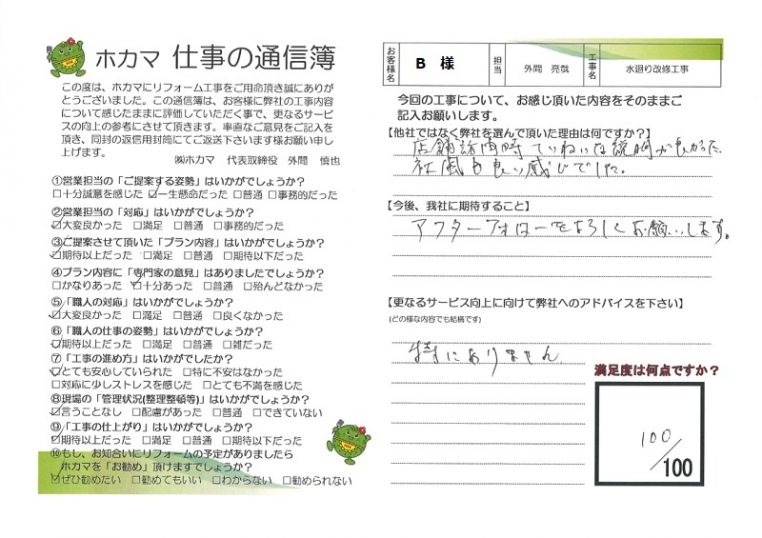 ホカマ 仕事の通信簿
この度は、ホカマにリフォーム工事をご用命頂き誠にありが
とうございました。この通信簿は、お客様に弊社の工事内容
について感じたままに評価していただく事で、更なるサービス
の向上の参考にさせて頂きます。率直なご意見をご記入を
頂き、同封の返信用封筒にてご返送下さいます様お願い申
し上げます。
㈱ホカマ 代表取締役 外間 慎也
①営業担当の「ご提案する姿勢」はいかがでしょうか?
□十分誠意を感じた ☑一生懸命だった □普通 □事務的だった
②営業担当の「対応」はいかがでしょうか?
☑大変良かった □満足 □普通 □事務的だった
③ご提案させて頂いた「プラン内容」はいかがでしょうか?
☑期待以上だった □満足 □普通 □期待以下だった
④プラン内容に「専門家の意見」はありましたでしょうか?
□かなりあった ☑十分あった □普通 □殆んどなかった
⑤「職人の対応」はいかがでしょうか?
☑大変良かった □満足 □普通 □良くなかった
⑥「職人の仕事の姿勢」はいかがでしょうか?
☑期待以上だった □満足 □普通 □雑だった
⑦「工事の進め方」はいかがでしたか?
☑とても安心していられた □特に不安はなかった
□対応に少しストレスを感じた □とても不満を感じた
⑧現場の「管理状況(整理整頓等)」はいかがでしょうか?
☑言うことなし □配慮があった □普通 □できていない
⑨「工事の仕上がり」はいかがでしょうか?
☑期待以上だった □満足 □普通 □期待以下だった
⑩もし、お知合いにリフォームの予定がありましたら
ホカマを「お勧め」頂けますでしょうか?
☑ぜひ勧めたい □勧めてもいい □わからない □勧められない
お客様名 B 様 担当 外間 亮哉 工事名 水廻り改修工事
今回の工事について、お感じ頂いた内容をそのままご
記入お願いします。
【他社ではなく弊社を選んで頂いた理由は何ですか?】
店舗訪問時ていねいな説明が良かった
社風も良い感じでした。
【今後、我社に期待すること】
アフターフォローをよろしくお願いします。
【更なるサービス向上に向けて弊社へのアドバイスを下さい】
(どの様な内容でも結構です)
特にありません
満足度は何点ですか?
100
/100